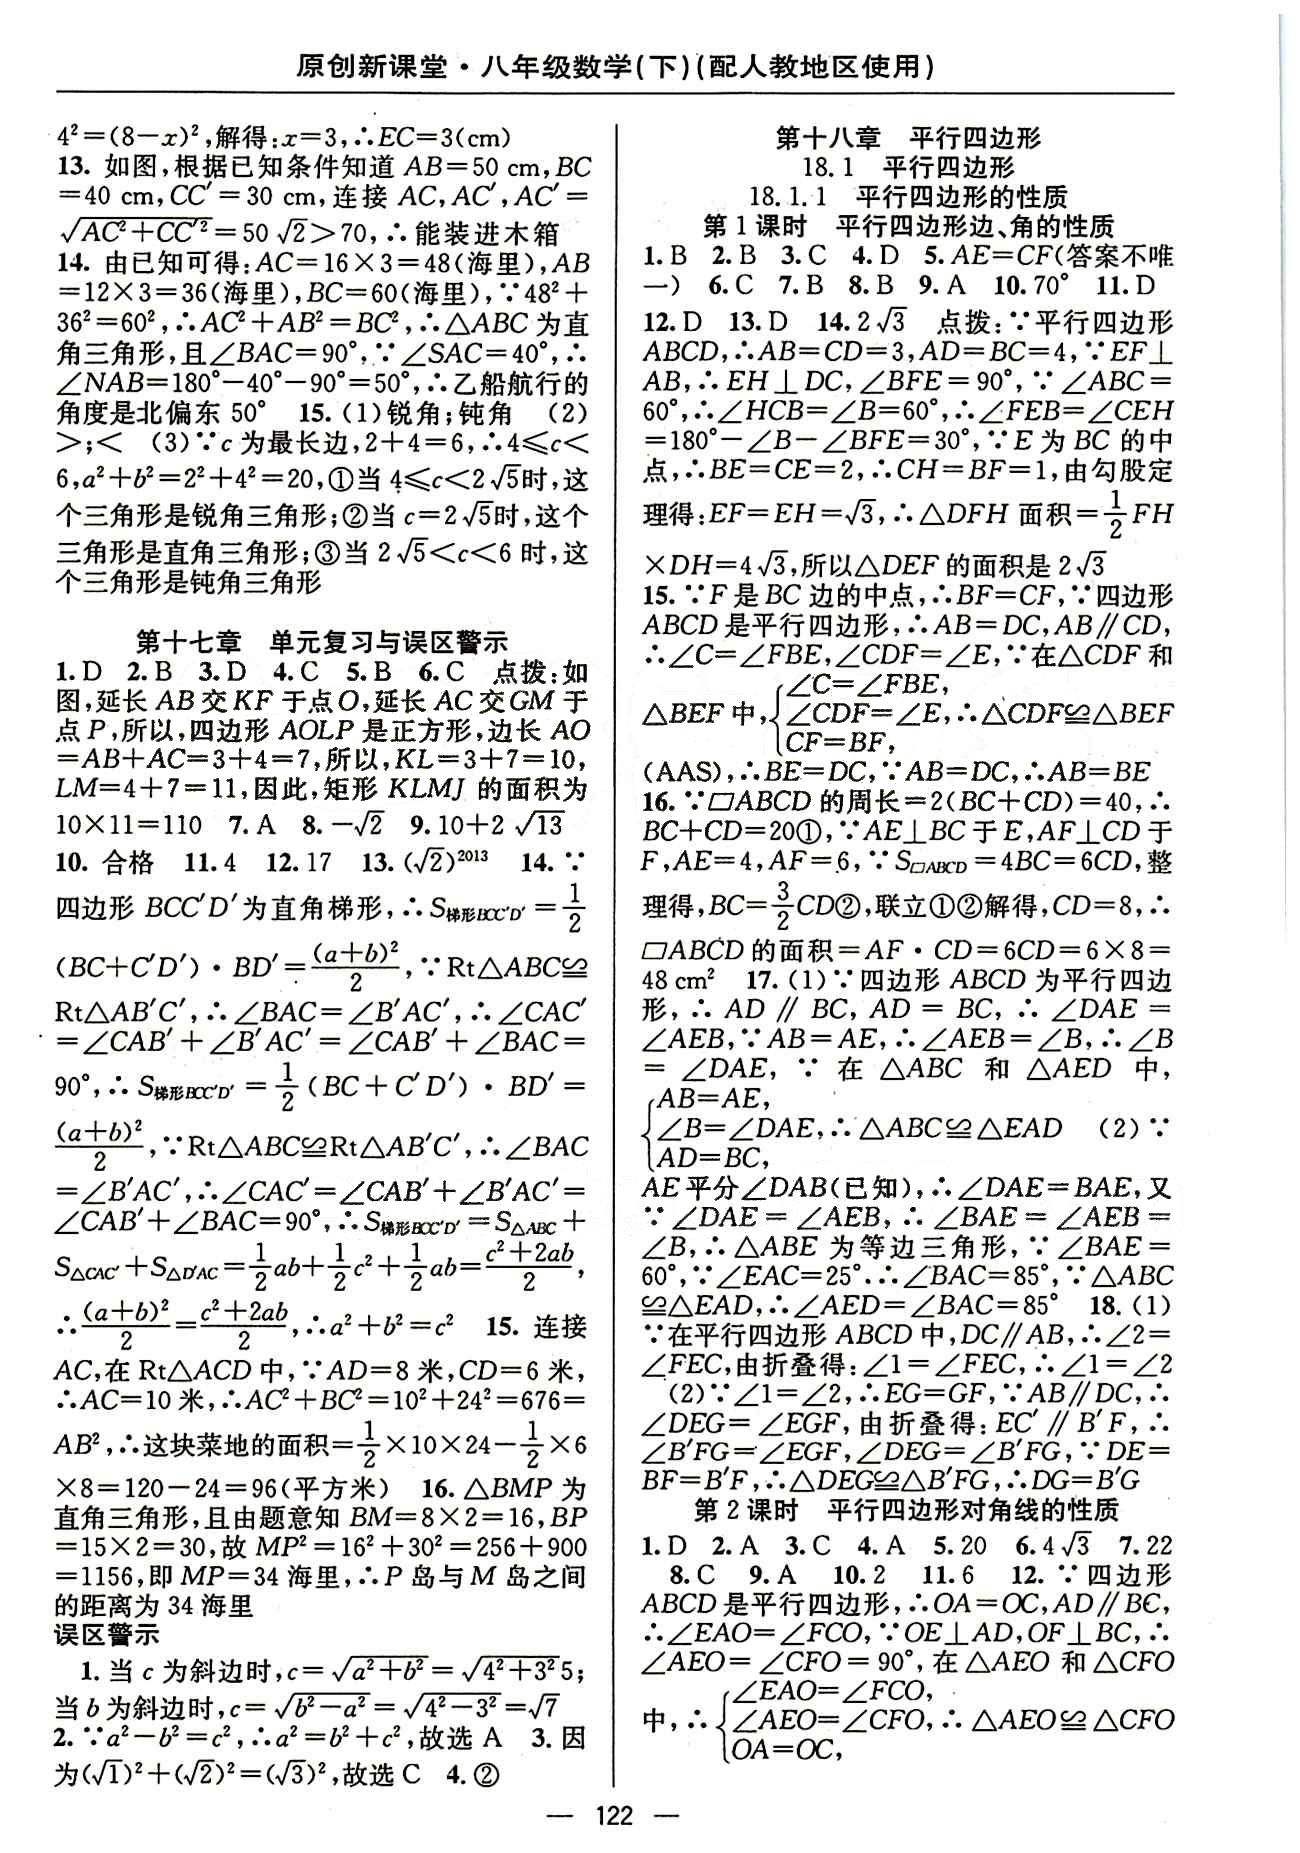 原创新课堂·八年级数学(下)(配人教地区使用)
4²=(8-x)²,解得:x=3,∴EC=3(cm)
13. 如图,根据已知条件知道 AB=50 cm,BC
=40 cm,CC′=30 cm,连接 AC,AC′,AC′=
√(AC²+CC′²)=50√2>70,∴能装进木箱
14. 由已知可得:AC=16×3=48(海里),AB
=12×3=36(海里),BC=60(海里),∵48²+
36²=60²,∴AC²+AB²=BC²,∴△ABC为直
角三角形,且∠BAC=90°,∵∠SAC=40°,∴
∠NAB=180°-40°-90°=50°,∴乙船航行的
角度是北偏东 50° 15. (1)锐角;钝角 (2)
>;< (3)∵c为最长边,2+4=6,∴4≤c<
6,a²+b²=2²+4²=20,①当 4≤c<2√5时,这
个三角形是锐角三角形;②当 c=2√5时,这个
三角形是直角三角形;③当 2√5<c<6 时,这
个三角形是钝角三角形
第十七章 单元复习与误区警示
1. D 2. B 3. D 4. C 5. B 6. C 点拨:如
图,延长 AB交KF 于点O,延长 AC交GM 于
点P,所以,四边形 AOLP 是正方形,边长 AO
=AB+AC=3+4=7,所以,KL=3+7=10,
LM=4+7=11,因此,矩形 KLMJ 的面积为
10×11=110 7. A 8. -√2 9. 10+2√13
10. 合格 11. 4 12. 17 13. (√2)²⁰¹³ 14. ∵
四边形 BCC′D′为直角梯形,∴S梯形BCC′D′=1/2
(BC+C′D′)·BD′=(a+b)²/2,∵Rt△ABC≌
Rt△AB′C′,∴∠BAC=∠B′AC′,∴∠CAC′
=∠CAB′+∠B′AC′=∠CAB′+∠BAC=
90°,∴S梯形BCC′D′=1/2(BC+C′D′)·BD′=
(a+b)²/2,∵Rt△ABC≌Rt△AB′C′,∴∠BAC
=∠B′AC′,∴∠CAC′=∠CAB′+∠B′AC′=
∠CAB′+∠BAC=90°,∴S梯形BCC′D′=S△ABC+
S△CAC′+S△D′AC=1/2ab+1/2c²+1/2ab=(c²+2ab)/2,
∴(a+b)²/2=(c²+2ab)/2,∴a²+b²=c² 15. 连接
AC,在 Rt△ACD 中,∵AD=8 米,CD=6 米,
∴AC=10 米,∴AC²+BC²=10²+24²=676=
AB²,∴这块菜地的面积=1/2×10×24-1/2×6
×8=120-24=96(平方米) 16. △BMP 为
直角三角形,且由题意知 BM=8×2=16,BP
=15×2=30,故 MP²=16²+30²=256+900
=1156,即 MP=34 海里,∴P 岛与M 岛之间
的距离为 34 海里
误区警示
1. 当 c 为斜边时,c=√(a²+b²)=√(4²+3²)5;
当 b 为斜边时,c=√(b²-a²)=√(4²-3²)=√7
2. ∵a²-b²=c²,∴a²=b²+c²,故选 A 3. 因
为(√1)²+(√2)²=(√3)²,故选 C 4. ②
第十八章 平行四边形
18.1 平行四边形
18.1.1 平行四边形的性质
第1课时 平行四边形边、角的性质
1. B 2. B 3. C 4. D 5. AE=CF(答案不唯
一) 6. C 7. B 8. B 9. A 10. 70° 11. D
12. D 13. D 14. 2√3 点拨:∵平行四边形
ABCD,∴AB=CD=3,AD=BC=4,∵EF⊥
AB,∴EH⊥DC,∠BFE=90°,∵∠ABC=
60°,∴∠HCB=∠B=60°,∴∠FEB=∠CEH
=180°-∠B-∠BFE=30°,∵E 为 BC 的中
点,∴BE=CE=2,∴CH=BF=1,由勾股定
理得:EF=EH=√3,∴△DFH 面积=1/2FH
×DH=4√3,所以△DEF的面积是 2√3
15. ∵F 是 BC 边的中点,∴BF=CF,∵四边形
ABCD是平行四边形,∴AB=DC,AB∥CD,
∴∠C=∠FBE,∠CDF=∠E,∵在△CDF 和
∠C=∠FBE,
△BEF中,{∠CDF=∠E,∴△CDF≌△BEF
CF=BF,
(AAS),∴BE=DC,∵AB=DC,∴AB=BE
16. ∵▱ABCD的周长=2(BC+CD)=40,∴
BC+CD=20①,∵AE⊥BC于E,AF⊥CD于
F,AE=4,AF=6,∵S▱ABCD=4BC=6CD,整
理得,BC=3/2CD②,联立①②解得,CD=8,∴
▱ABCD的面积=AF·CD=6CD=6×8=
48 cm² 17. (1)∵四边形 ABCD 为平行四边
形,∴AD∥BC,AD=BC,∴∠DAE=
∠AEB,∵AB=AE,∴∠AEB=∠B,∴∠B
=∠DAE,∵在△ABC 和△AED 中,
AB=AE,
{∠B=∠DAE,∴△ABC≌△EAD (2)∵
AD=BC,
AE平分∠DAB(已知),∴∠DAE=BAE,又
∵∠DAE=∠AEB,∴∠BAE=∠AEB=
∠B,∴△ABE 为等边三角形,∵∠BAE=
60°,∵∠EAC=25°∴∠BAC=85°,∵△ABC
≌△EAD,∴∠AED=∠BAC=85° 18. (1)
∵在平行四边形 ABCD中,DC∥AB,∴∠2=
∠FEC,由折叠得:∠1=∠FEC,∴∠1=∠2
(2)∵∠1=∠2,∴EG=GF,∵AB∥DC,∴
∠DEG=∠EGF,由折叠得:EC′∥B′F,∴
∠B′FG=∠EGF,∠DEG=∠B′FG,∵DE=
BF=B′F,∴△DEG≌△B′FG,∴DG=B′G
第2课时 平行四边形对角线的性质
1. D 2. A 3. C 4. A 5. 20 6. 4√3 7. 22
8. C 9. A 10. 2 11. 6 12. ∵四边形
ABCD是平行四边形,∴OA=OC,AD∥BC,
∴∠EAO=∠FCO,∵OE⊥AD,OF⊥BC,∴
∠AEO=∠CFO=90°,在△AEO 和△CFO
∠EAO=∠FCO,
中,∴{∠AEO=∠CFO,∴△AEO≌△CFO
OA=OC,
— 122 —